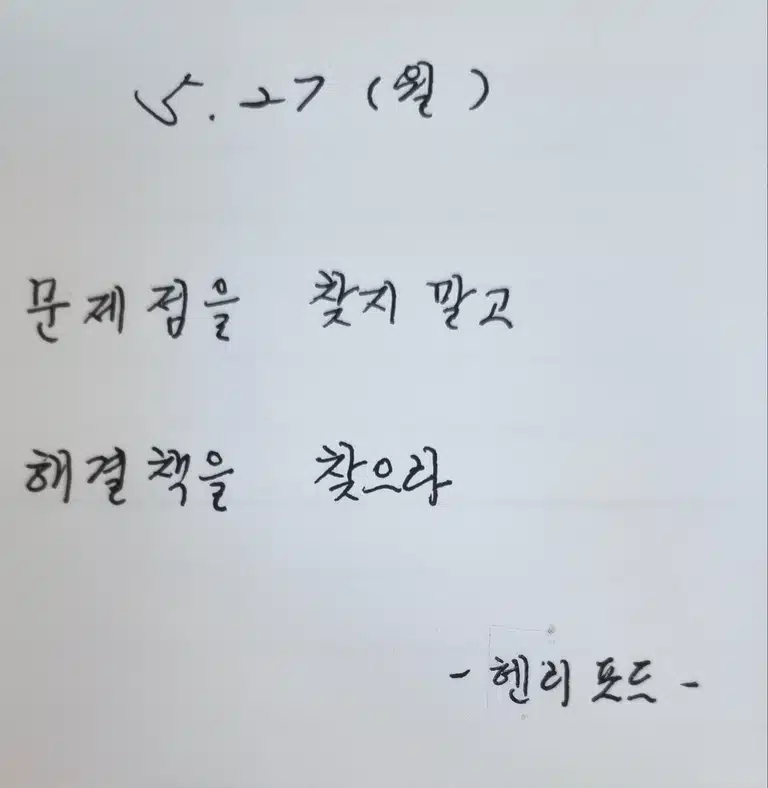 5.27 (월)
문제점을 찾지 말고
해결책을 찾으라
- 헨리 포드 -